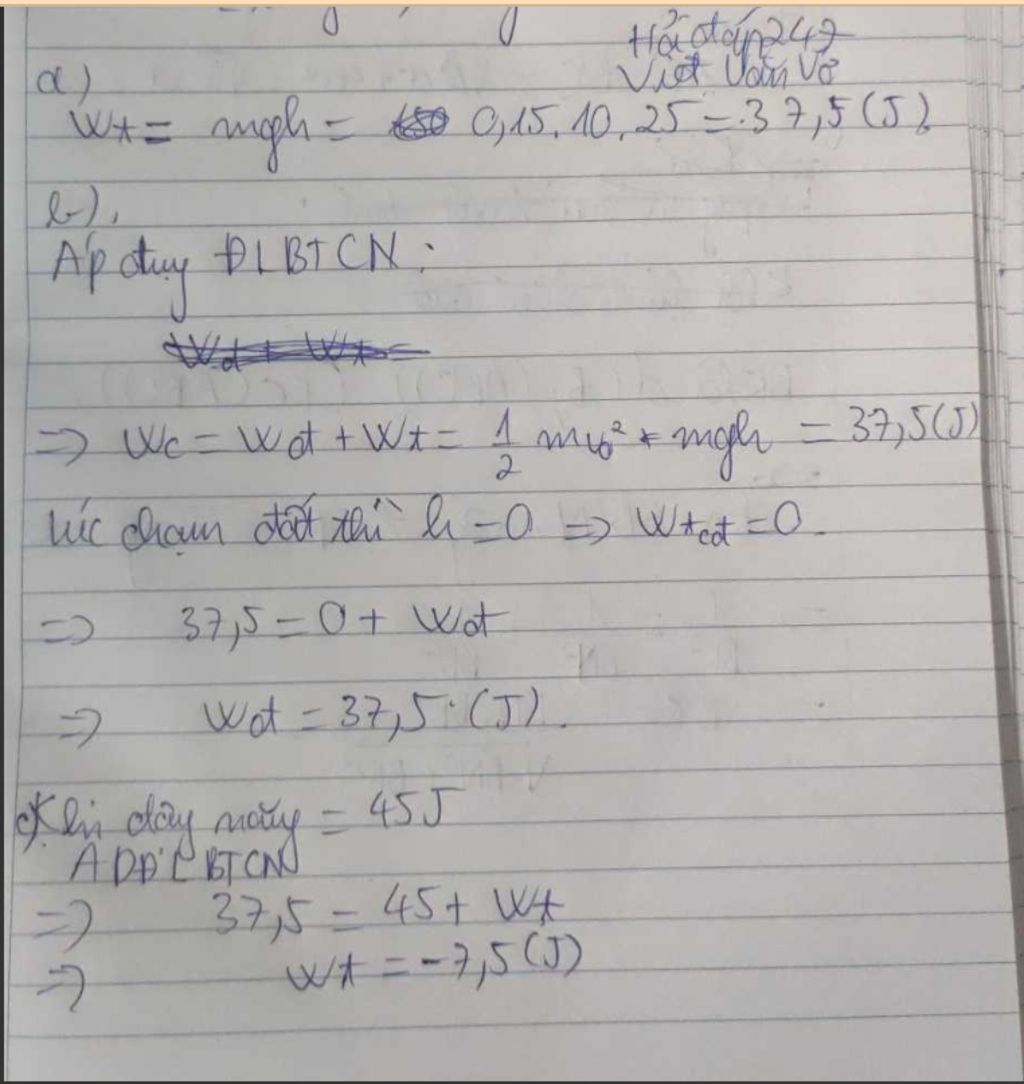 Hỏi đáp 247
Viết Văn Vở
a)
Wt = mgh = 0,15.10.25 = 37,5 (J)
b).
Áp dụng ĐLBTCN :
Wđ + Wt =
=> Wc = Wđ + Wt = 1/2 mv0² + mgh = 37,5(J)
lúc chạm đất thì h = 0 => Wtcđ = 0.
=> 37,5 = 0 + Wđ
=> Wđ = 37,5 (J).
c) Khi động năng = 45J
ADĐLBTCN
=> 37,5 = 45 + Wt
=> Wt = -7,5 (J)